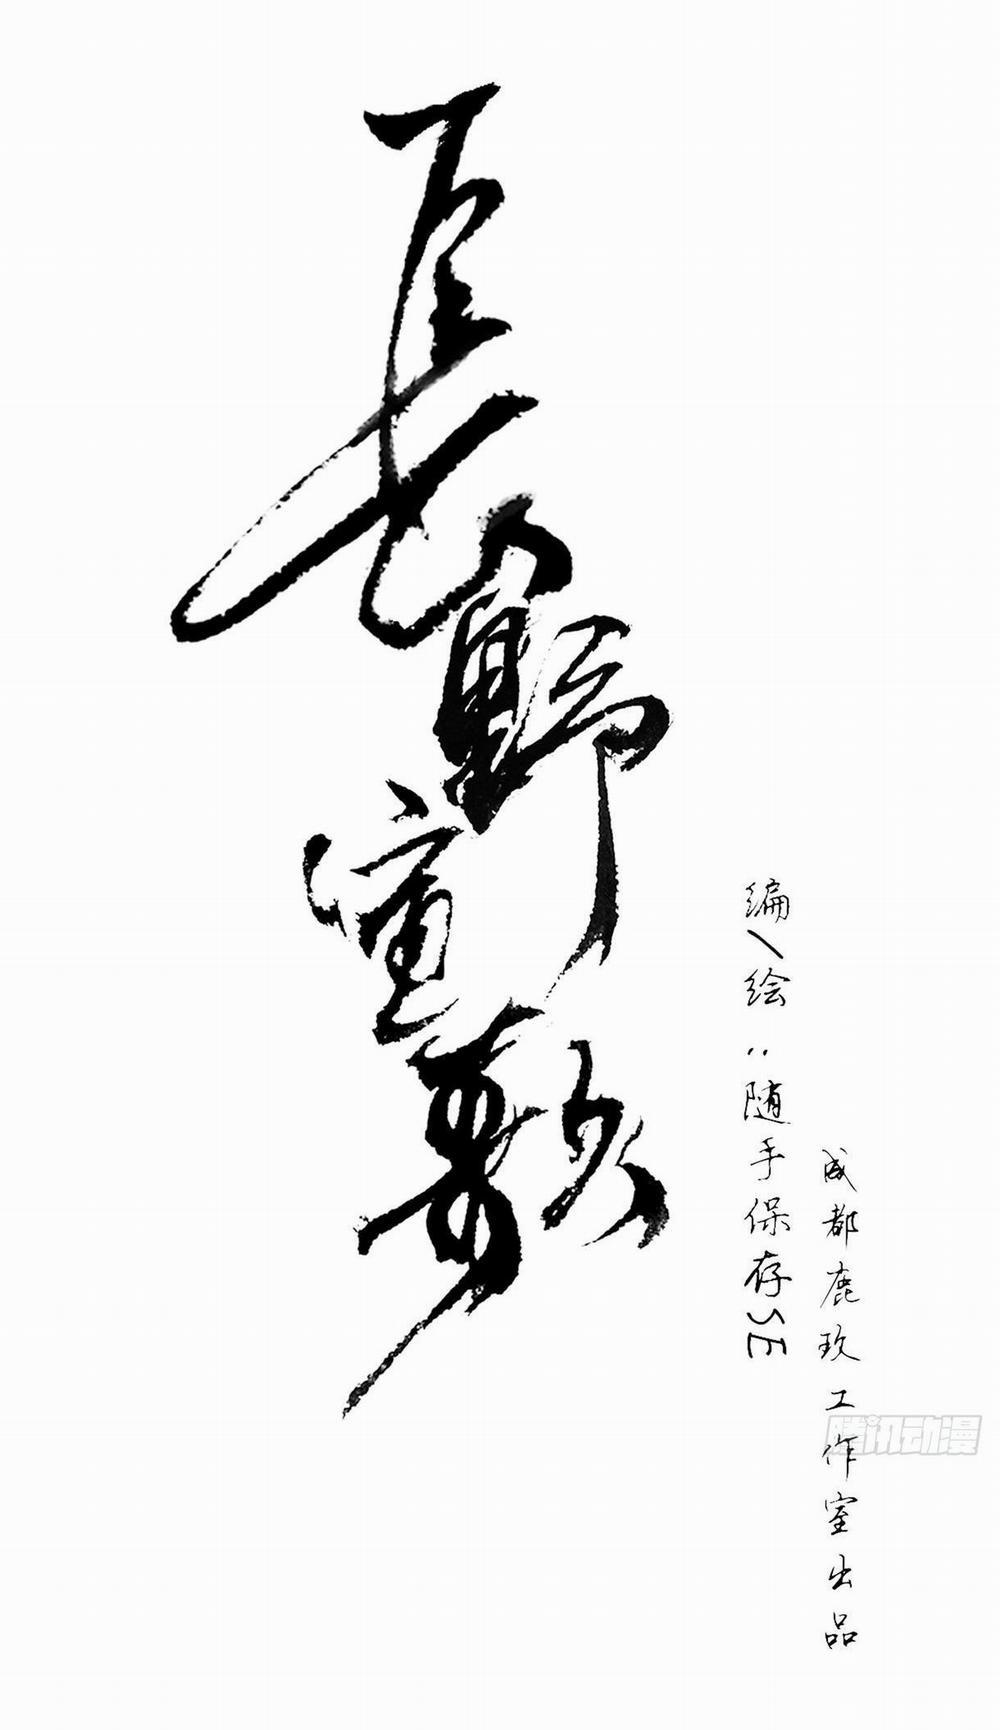 長野
编/绘：随手保存SE
成都鹿玖工作室出品
腾讯动漫